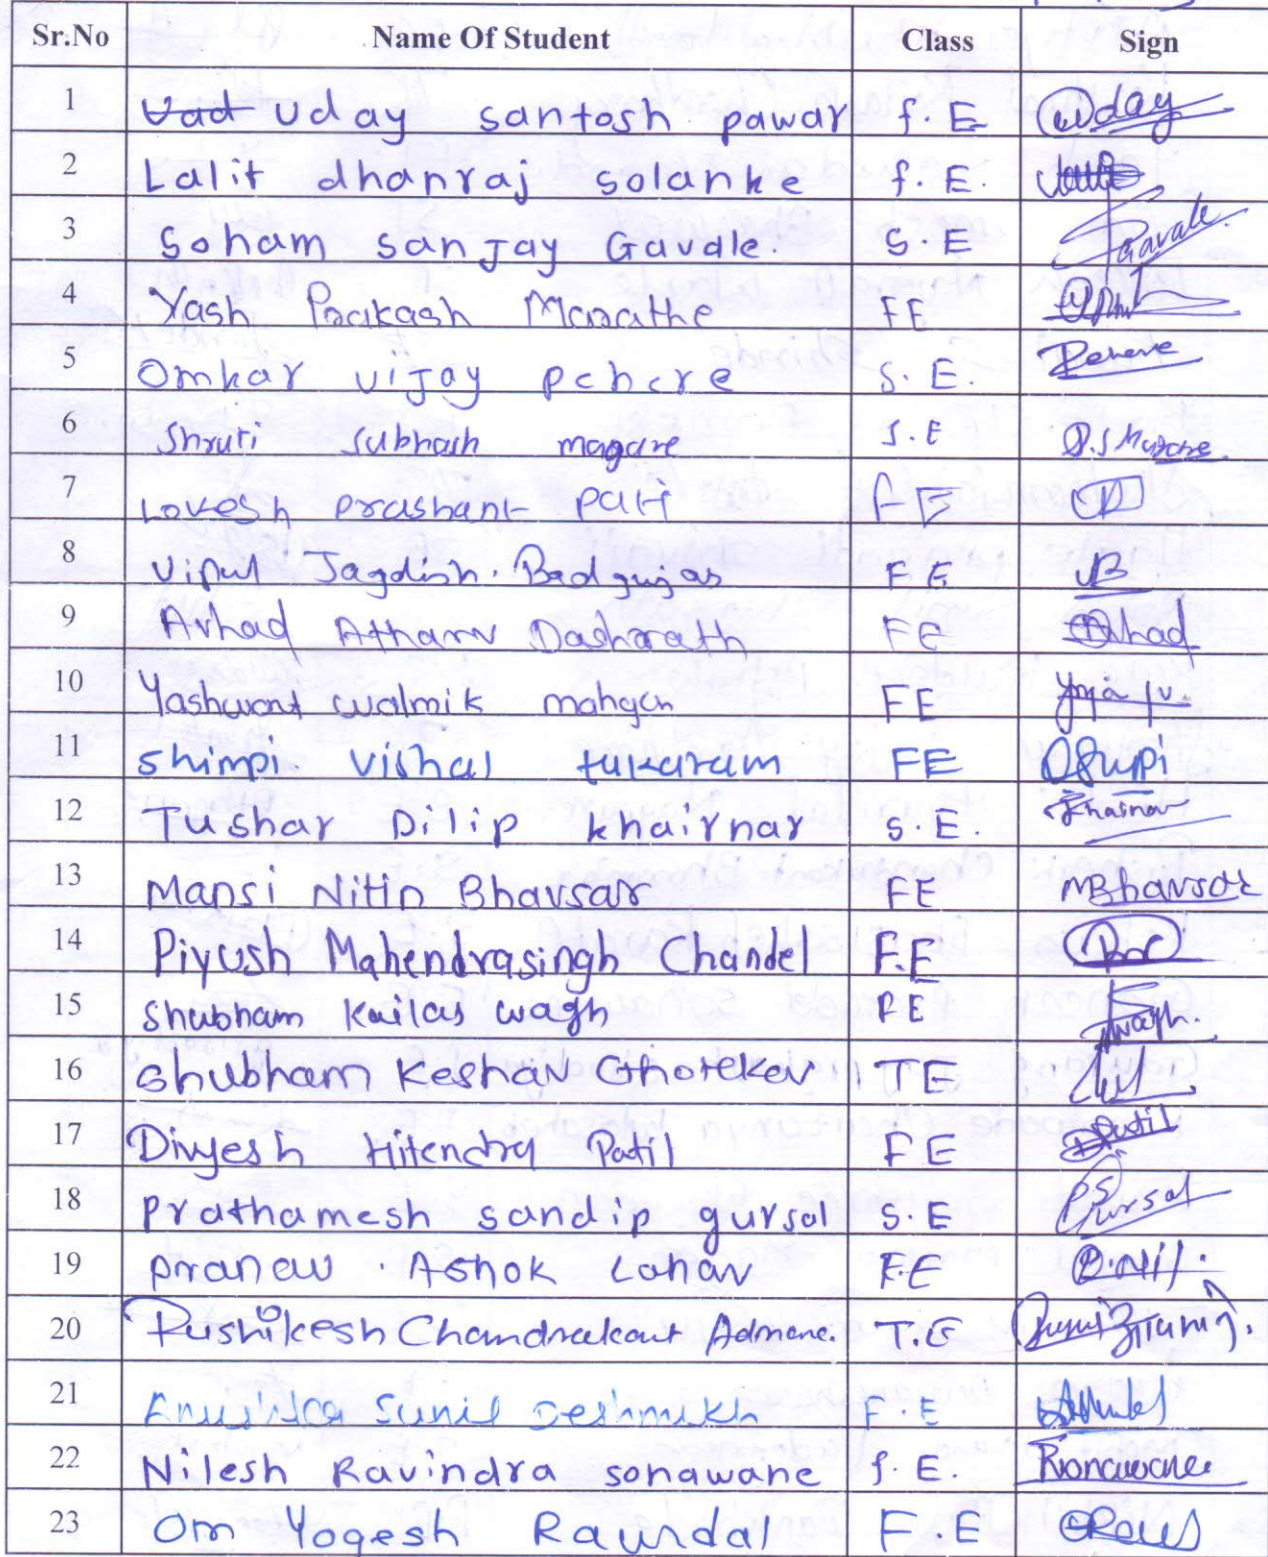 Sr.No Name Of Student Class Sign
1 Uad Uday santosh pawar f.E Uday
2 Lalit dhanraj solanke f.E.
3 Soham sanjay Gavale. S.E Gavale.
4 Yash Prakash Marathe FE
5 Omkar vijay pehere S.E. Pehere
6 Shruti subhash magare S.E S.S Magare
7 Lovesh prashant patil FE
8 Vipul Jagdish. Badgujar F.E VB
9 Avhad Atharv Dasharath FE Avhad
10 Yashwant walmik mahajan FE
11 Shimpi vishal tukaram FE
12 Tushar Dilip khairnar S.E. Khairnar
13 Mansi Nitin Bhavsar FE MBhavsar
14 Piyush Mahendrasingh Chandel F.E
15 Shubham kailas wagh FE wagh.
16 Shubham Keshav Ghotekar TE
17 Divyesh Hitendra Patil FE Patil
18 Prathamesh sandip gursal S.E PS Gursal
19 pranav . Ashok Lohar F.E
20 Rushikesh Chandrakant Admane. T.E
21 Anushka Sunil Deshmukh F.E
22 Nilesh Ravindra sonawane f.E. Rsonawane
23 Om Yogesh Raundal F.E